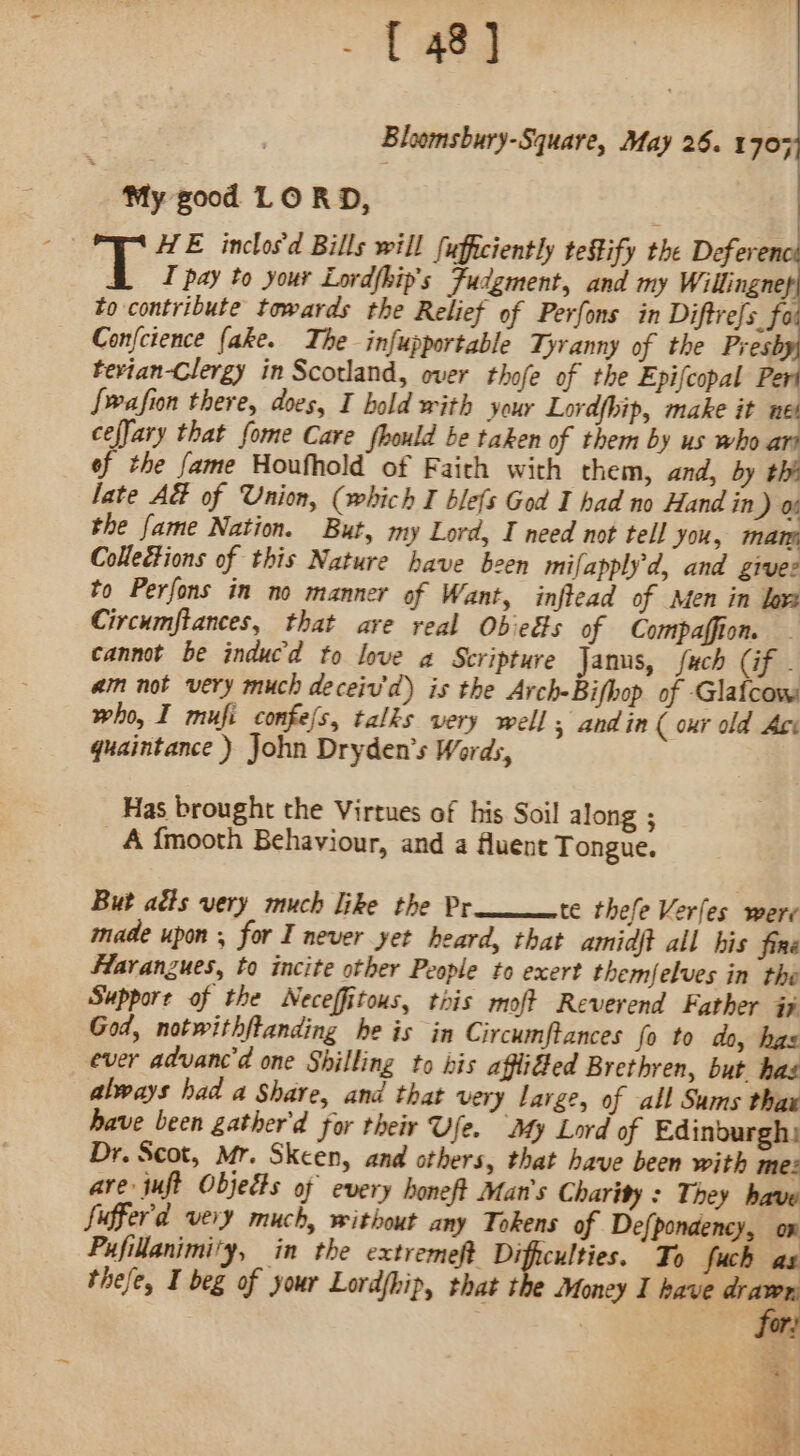 [ 48 ]
Bloomsbury-Square, May 26. 1707
My good LORD,
THE inclos'd Bills will ſufficiently teſtify the Deferenc
I pay to your Lordſhip's Judgment, and my Willingneſ
to contribute towards the Relief of Perſons in Diſtreſs fo
Conſcience ſake. The inſupportable Tyranny of the Presby
terian-Clergy in Scotland, over thoſe of the Epiſcopal Per
ſwaſion there, does, I hold with your Lordſhip, make it ne
ceſſary that ſome Care ſhould be taken of them by us who ar
of the ſame Houſhold of Faith with them, and, by th
late Act of Union, (which I bleſs God I had no Hand in) o
the ſame Nation. But, my Lord, I need not tell you, man
Collections of this Nature have been miſapply'd, and give
to Perſons in no manner of Want, inſtead of Men in low
Circumſtances, that are real Objects of Compaſſion.
cannot be induc'd to love a Scripture Janus, ſuch (if
am not very much deceiv'd) is the Arch-Biſhop of Glaſcow
who, I muſt confeſs, talks very well; and in ( our old Ac
quaintance ) John Dryden's Words,
Has brought the Virtues of his Soil along ;
A ſmooth Behaviour, and a fluent Tongue.
But acts very much like the Pr——te theſe Verſes were
made upon ; for I never yet heard, that amidſt all his fine
Harangues, to incite other People to exert themſelves in the
Support of the Neceſſitous, this moſt Reverend Father in
God, notwithſtanding he is in Circumſtances ſo to do, has
ever advanc'd one Shilling to his afflicted Brethren, but has
always had a Share, and that very large, of all Sums that
have been gather'd for their Uſe. My Lord of Edinburgh
Dr. Scot, Mr. Skeen, and others, that have been with me
are juſt Objects of every honeſt Man's Charity : They have
ſuffer'd very much, without any Tokens of Deſpondency, or
Puſillanimity, in the extremeſt Difficulties. To ſuch as
theſe, I beg of your Lordſhip, that the Money I have drawn
for